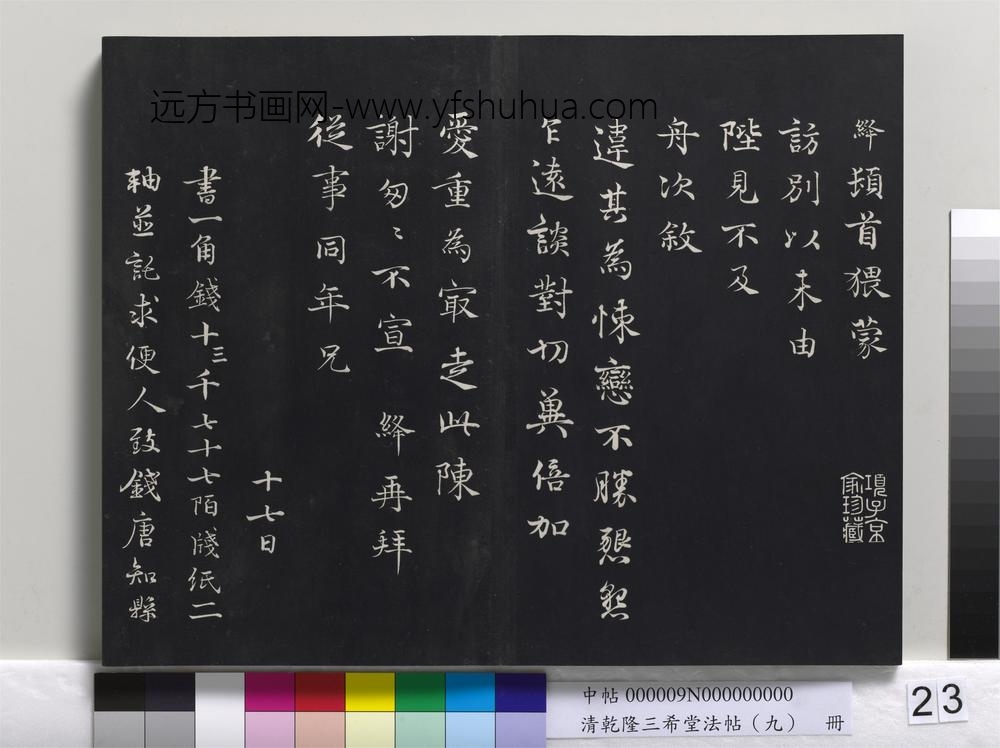 远方书画网-www.yfshuhua.com
絳頓首猥蒙
訪別以未由
陛見不及
舟次敘
違甚為悚戀不勝懇懇
乍遠談對切冀倍加
愛重為冣走此陳
謝匆〻不宣 絳再拜
從事同年兄
十七日
書一角錢十三千七十七陌牋紙二
軸並託求便人致錢唐知縣
項子京
家珍藏
中帖 000009N000000000
清乾隆三希堂法帖（九） 冊
23